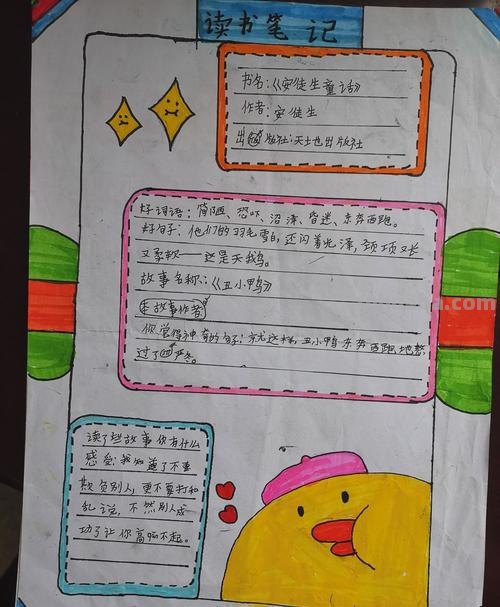 读书笔记
书名:《安徒生童话》
作者:安徒生
出版社:天土也出版社
好词语:简陋、恐吓、沼泽、昏迷、东奔西跑。
好句子:他们的羽毛雪白,还闪着光泽,颈项又长
又柔软——这是天鹅。
故事名称:《丑小鸭》
故事作者
你觉得神奇的句子:就这样,丑小鸭东奔西跑地熬
过了严冬。
读了些故事你有什么
感受:我知道了不要
欺负别人,更不要打和
乱说,不然别人成
功了让你高不起。